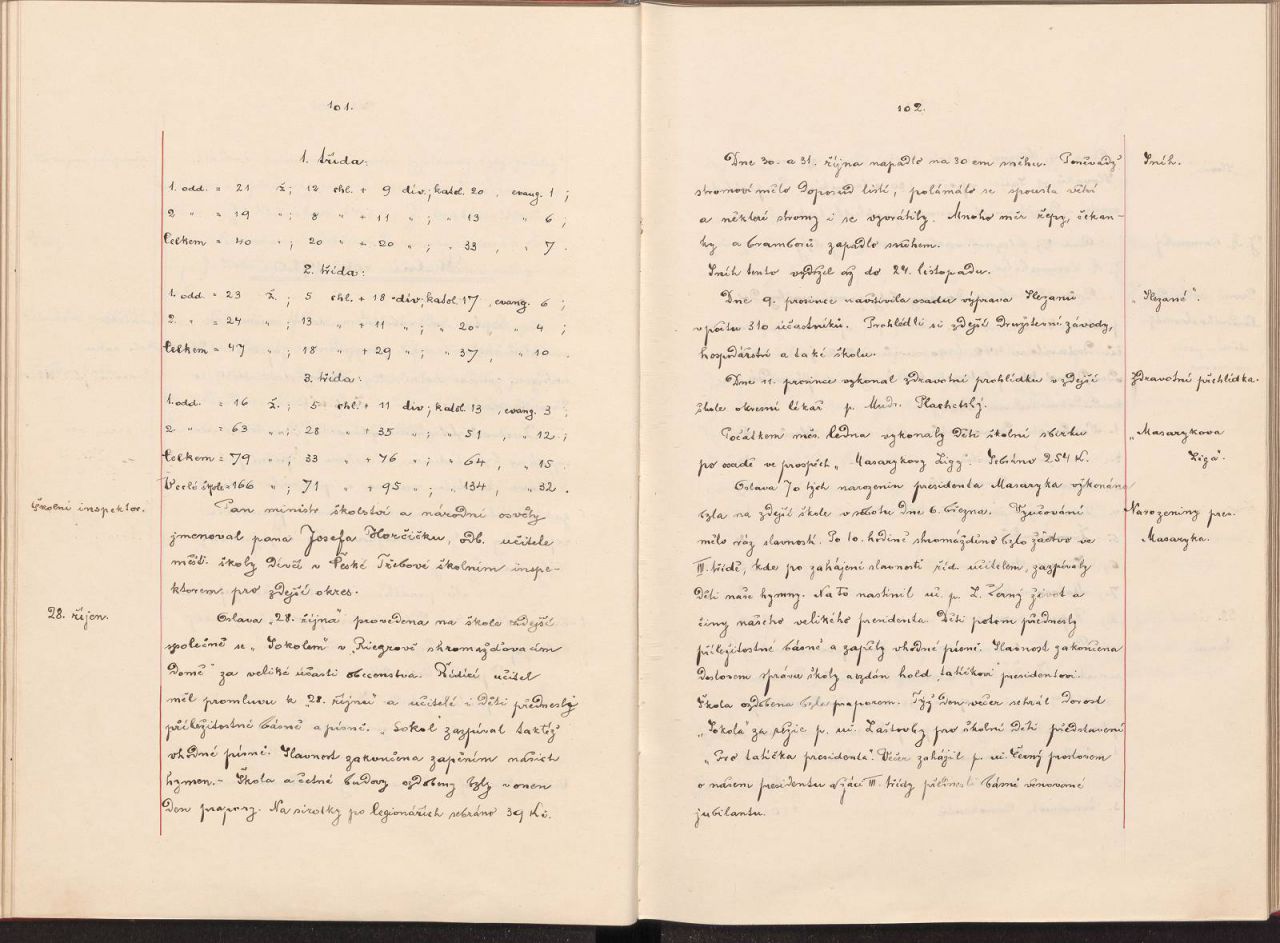 101.
1. třída:
1. odd. = 21 ž.; 12 chl. + 9 dív.; katol. 20, evang. 1;
2 " = 19 "; 8 " + 11 "; " 13 " 6;
Celkem = 40 "; 20 " + 20 "; " 33, " 7.
2. třída:
1. odd. = 23 ž.; 5 chl. + 18 dív.; katol. 17, evang. 6;
2. " = 24 "; 13 " + 11 "; " 20 " 4;
Celkem = 47 "; 18 " + 29 "; " 37, " 10.
3. třída:
1. odd. = 16 ž.; 5 chl. + 11 dív.; katol. 13, evang. 3;
2 " = 63 "; 28 " + 35 "; " 51, " 12;
Celkem = 79 "; 33 " + 46 "; " 64, " 15
V celé škole = 166 "; 71 " + 95 "; " 134, " 32.
Školní inspektor.
Pan ministr školství a národní osvěty
jmenoval pana Josefa Horčičku, odb. učitele
měšť. školy dívčí v České Třebové školním inspe-
ktorem pro zdejší okres.
28. říjen.
Oslava „28. října" provedena na škole zdejší
společně se „Sokolem" v „Riegrově shromažďovacím
domě" za veliké účasti obecenstva. Řídící učitel
měl promluvu k „28. říjnu" a učitelé i děti přednesly
příležitostné básně a písně. „Sokol" zazpíval taktéž
vhodné písně. Slavnost zakončena zapěním našich
hymen. - Škola a četné budovy ozdobeny byly v onen
den prapory. Na sirotky po legionářích sebráno 39 Kč.
102.
Dne 30. a 31. října napadlo na 30 cm sněhu. Poněvadž
stromoví mělo doposud listí, polámalo se spousta větví
a některé stromy i se vyvrátily. Mnoho měr řepy, čekan-
ky a bramborů zapadlo sněhem.
Sníh tento vydržel až do 24. listopadu.
Sníh.
Dne 9. prosince navštívila osadu výprava Slezanů
v počtu 310 účastníků. Prohlédli si zdejší družstevní závody,
hospodářství a také školu.
„Slezané".
Dne 11. prosince vykonal zdravotní prohlídku v zdejší
škole okresní lékař p. Mudr. Plachetský.
Zdravotní přehlídka.
Počátkem měs. ledna vykonaly děti školní sbírku
po osadě ve prospěch „Masarykovy Ligy". Sebráno 254 K.
„Masarykova
Liga".
Oslava 70 tých narozenin presidenta Masaryka vykonána
byla na zdejší škole v sobotu dne 6. března. Vyučování
mělo ráz slavnostní. Po 10. hodině shromážděno bylo žactvo ve
III. třídě, kde po zahájení slavnosti říd. učitelem, zazpívaly
děti naše hymny. Na to nastínil uč. p. L. Černý život a
činy našeho velikého presidenta. Děti potom přednesly
příležitostné básně a zapěly vhodné písně. Slavnost zakončena
doslovem správce školy a vzdán hold „tatíčkovi" presidentovi.
Škola ozdobena byla praporem. Týž den večer sehrál dorost
„Sokola" za režie p. uč. Laštovky pro školní děti představení
„Pro tatíčka presidenta". Večer zahájil p. uč. Černý proslovem
o našem presidentu a žáci III. třídy přednesli básně věnované
jubilantu.
Narozeniny pres.
Masaryka.